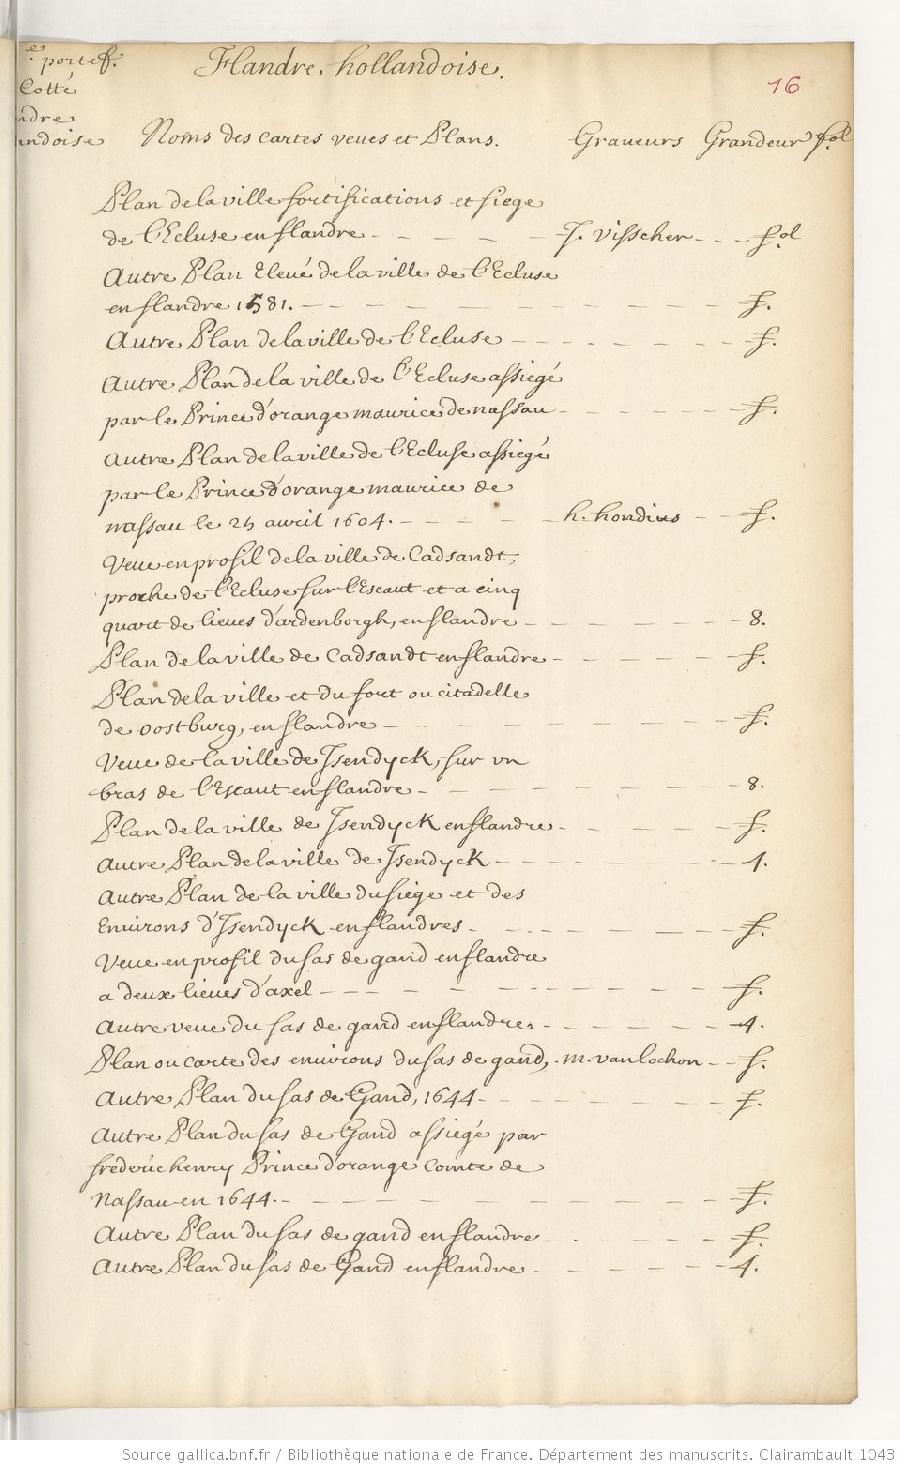 e portef.
Cotté
ndre
andoise
Flandre hollandoise.
16
Noms des cartes veues et Plans. Graveurs Grandeur fol
Plan de la ville fortifications et siege
de l'Ecluse en flandre - - - - J. Visscher - - - fol
Autre Plan Elevé de la ville de l'Ecluse
en flandre 1581. - - - - - - - - f.
Autre Plan de la ville de l'Ecluse - - - - - - f.
Autre Plan de la ville de l'Ecluse assiegé
par le Prince d'orange maurice de nassau - - - - - f.
Autre Plan de la ville de l'Ecluse assiegé
par le Prince d'orange maurice de
nassau le 25 avril 1604. - - - - h. hondius - - f.
Veue en profil de la ville de Cadsandt,
proche de l'Ecluse sur l'Escaut et a cinq
quart de lieues d'ardenborgh, en flandre - - - - - - 8.
Plan de la ville de Cadsandt en flandre - - - - - f.
Plan de la ville et du fort ou citadelle
de oostburg, en flandre - - - - - - - f.
Veue de la ville de Jsendyck, sur un
bras de l'Escaut en flandre - - - - - - - 8.
Plan de la ville de Jsendyck en flandre - - - - - f.
Autre Plan de la ville de Jsendyck - - - - - 4.
Autre Plan de la ville du siège et des
Environs d'Jsendyck en flandres - - - - - - f.
Veue en profil du sas de gand en flandre
a deux lieues d'axel - - - - - - - - f.
Autre veue du sas de gand en flandre. - - - - - 4.
Plan ou carte des environs du sas de gand, - m. van lochon - - f.
Autre Plan du sas de Gand, 1644 - - - - - - f.
Autre Plan du sas de Gand assiegé par
frederic henry Prince d'orange Comte de
Nassau en 1644. - - - - - - - - f.
Autre Plan du sas de gand en flandre - - - - f.
Autre Plan du sas de Gand en flandre - - - - - 4.
Source gallica.bnf.fr / Bibliothèque nationale de France. Département des manuscrits. Clairambault 1043